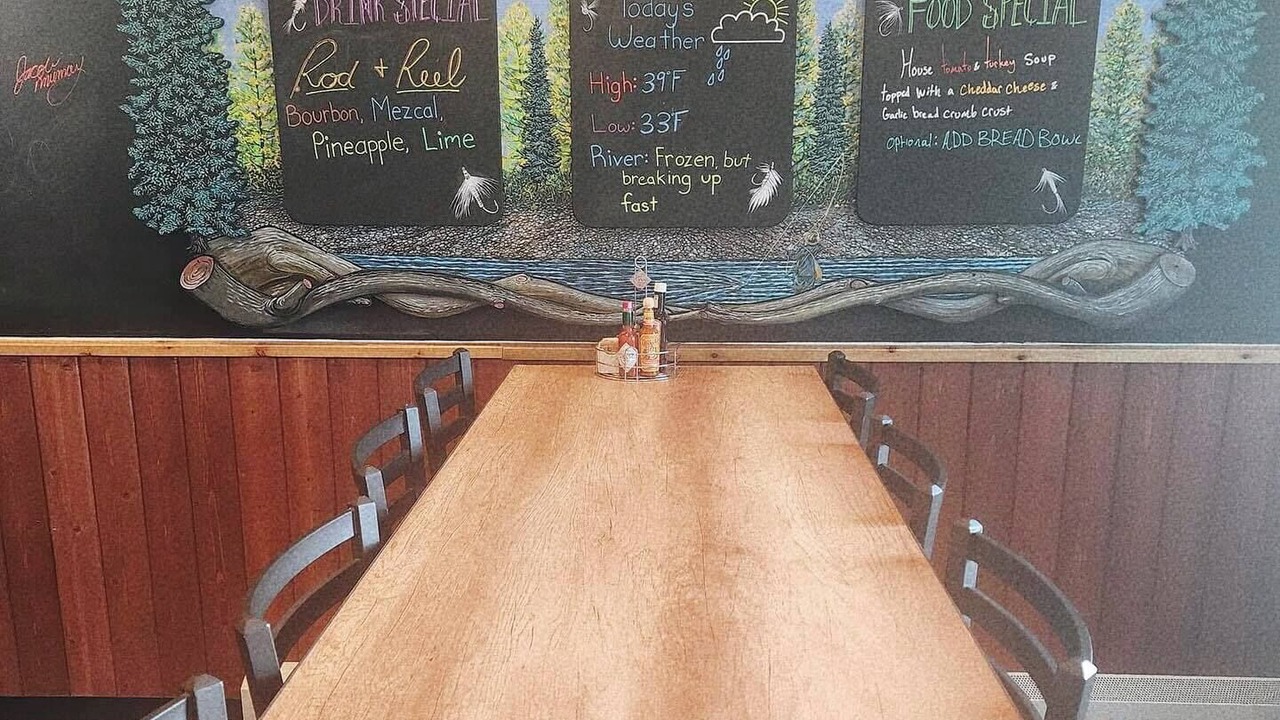 DRINK SPECIAL
Rod + Reel
Bourbon, Mezcal,
Pineapple, Lime
Today's
Weather
High: 39°F
Low: 33°F
River: Frozen, but
breaking up
fast
FOOD SPECIAL
House tomato & turkey soup
topped with a cheddar cheese &
Garlic bread crumb crust
optional: ADD BREAD BOWL
Jacob